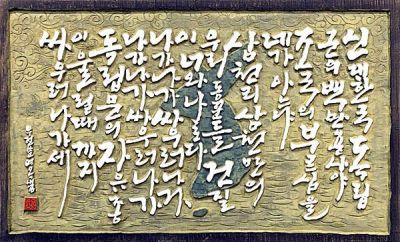 신대한국 독립
군의 백만용사야
조국의 부르심을
네가 아느냐
삼천리 삼천만의
우리 동포들 건질
이 너와 나로다
나가나가 싸우러 나가
나가나가 싸우러 나가
독립문의 자유종
이 울릴때 까지
싸우러 나가세